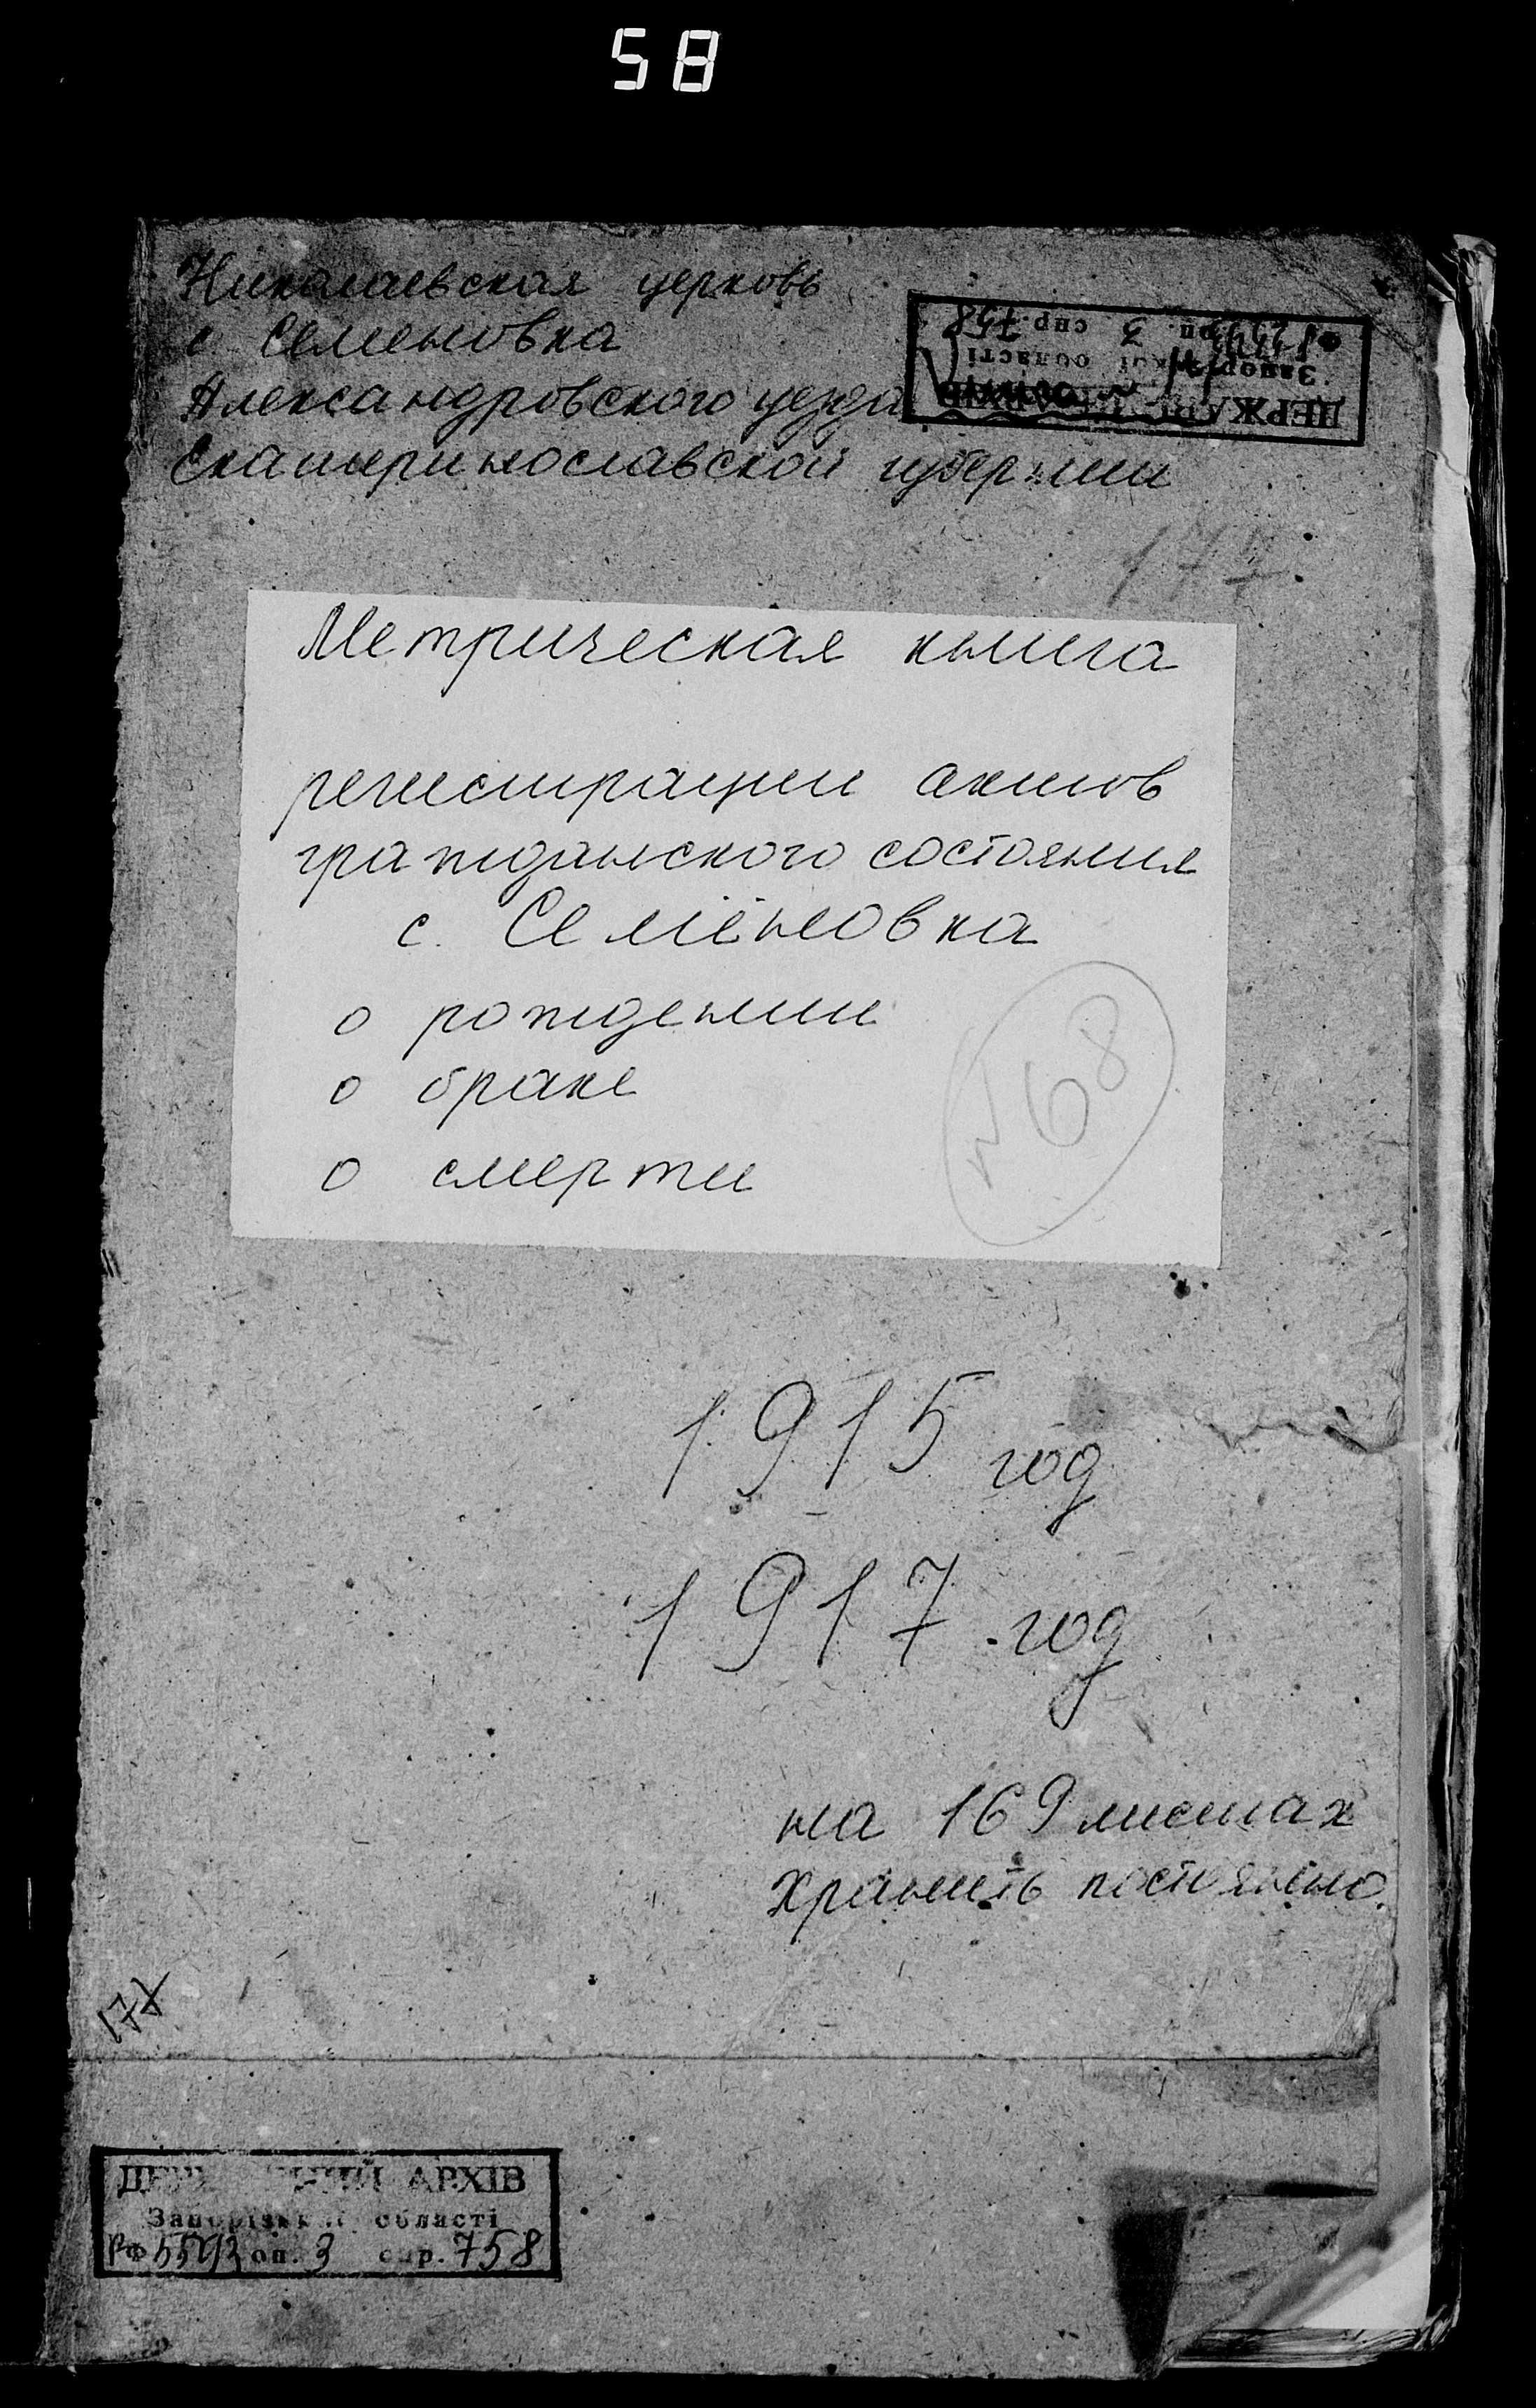 58
Николаевская церковь
с. Семеновка
Александровского уезда
Екатеринославской губернии
177
Метрическая книга
регистрации актов
гражданского состояния
с. Семёновка
о рождении
о браке
о смерти
№68
1915 год
1917 год
на 169 листах
Хранить постоянно.
177
АРХІВ
Запорізької області
оп. 3 спр. 758